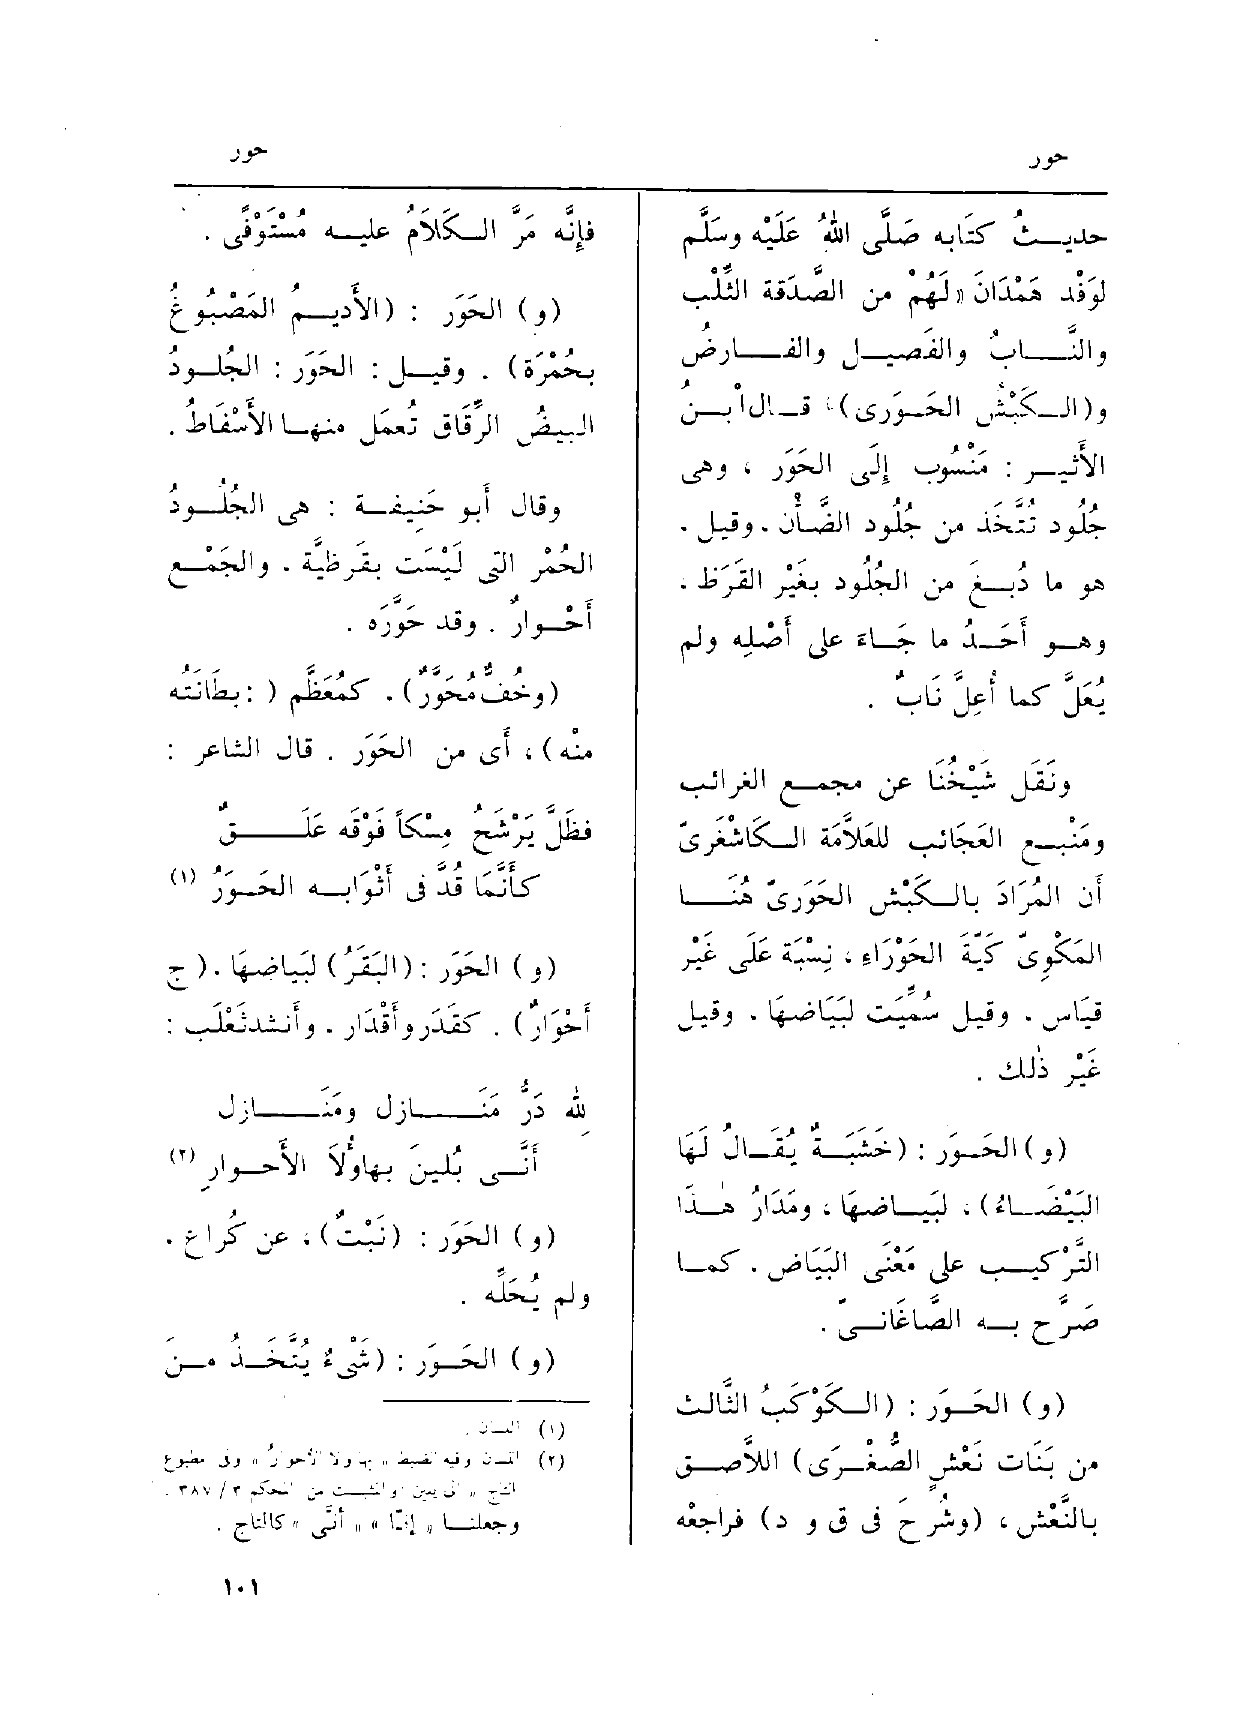 حور
حور
حديـثُ كتَابه صَلَّى اللهُ عَلَيْه وسَلَّم
لوَفْد هَمْدَانَ «لَهُمْ من الصَّدَقة الثِّلْب
والنَّـابُ والفَصيـل والفَـارضُ
و(الـكَبْشُ الحَـوَرى)» قـال ابـن
الأَثيـر : مَنْسُوب إِلَى الحَوَر ، وهى
جُلُود تُتَّخَذ من جُلُود الضَّأْن . وقيل .
هو ما دُبـغَ من الجُلُود بغَيْر القَرَظ .
وهـو أَحَـدُ ما جَـاءَ على أَصْلِه ولم
يُعَلَّ كما أُعِلَّ نَابٌ .
ونَقَل شَيْخُنَا عن مجمـع الغرائب
ومَنْبـع العَجَائب للعَلاَّمَة الـكَاشْغَرىّ
أَن المُرَادَ بالـكَبْش الحَوَرىّ هُنَـا
المَكْوِىّ كَيَّةَ الحَوْرَاءِ ، نِسْبَة عَلَى غَيْر
قيَاس . وقيل سُمِّيَت لبَيَاضهَا . وقيل
غَيْر ذٰلك .
(و) الحَـوَرَ : (خَشَبَـةٌ يُقَـالُ لَهَا
البَيْضَـاءُ) ، لبَيَـاضهَا ، ومَدَارُ هـٰذَا
التَّرْكيـب على مَعْنَى البَيَاض . كمـا
صَرَّح بـه الصَّاغَانـىّ .
(و) الحَـوَر : (الـكَوْكَبُ الثَّالث
من بَنَات نَعْشٍ الصُّغْـرَى) اللاَّصـق
بالنَّعْش ، (وشُرِحَ فى ق و د) فراجعْه
فإِنَّه مَرَّ الـكَلاَمُ عليـه مُسْتَوْفًى .
(و) الحَوَر : (الأَديـمُ المَصْبُوغُ
بحُمْرَة) . وقيـل : الحَوَر : الجُلـودُ
البيضُ الرِّقَاق تُعمَل منهـا الأَسْفَاط .
وقال أَبو حَنيفـة : هى الجُلُـودُ
الحُمْر التى لَيْسَت بقَرظيَّة . والجَمْـع
أَحْـوارٌ . وقد حَوَّرَه .
(وخُفٌّ مُحَوَّرٌ) . كمُعَظَّم ( : بطَانَتُه
منْه) ، أَى من الحَوَر . قال الشاعر :
فظَلَّ يَرْشَحُ مِسْكاً فَوْقَه عَلَـقٌ
كأَنَّمَا قُدَّ فى أَثْوَابـه الحَـوَرُ (١)
(و) الحَوَر : (البَقَرُ) لبَيَاضهَا . (ج
أَحْوَارٌ) . كقَدَر وأَقْدَار . وأَنشد ثَعْلَب :
للهِ دَرُّ مَنَـازل ومَنَـازل
أَنَّـى بُلينَ بهاؤُلاَ الأَحـوارِ (٢)
(و) الحَوَر : (نَبْتٌ) ، عن كُراع .
ولم يُحَلِّه .
(و) الحَـوَر : (شَىْءٌ يُتَّخَـذُ مـنَ
(١) اللسان .
(٢) اللسان وفيه الضبط « بهاؤلا الأحوارُ » وفى مطبوع
التاج « والمثبت من المحكم ٣ / ٣٨٧ .
وجعلنـا « إنّا » « أنَّى » كالتاج .
١٠١